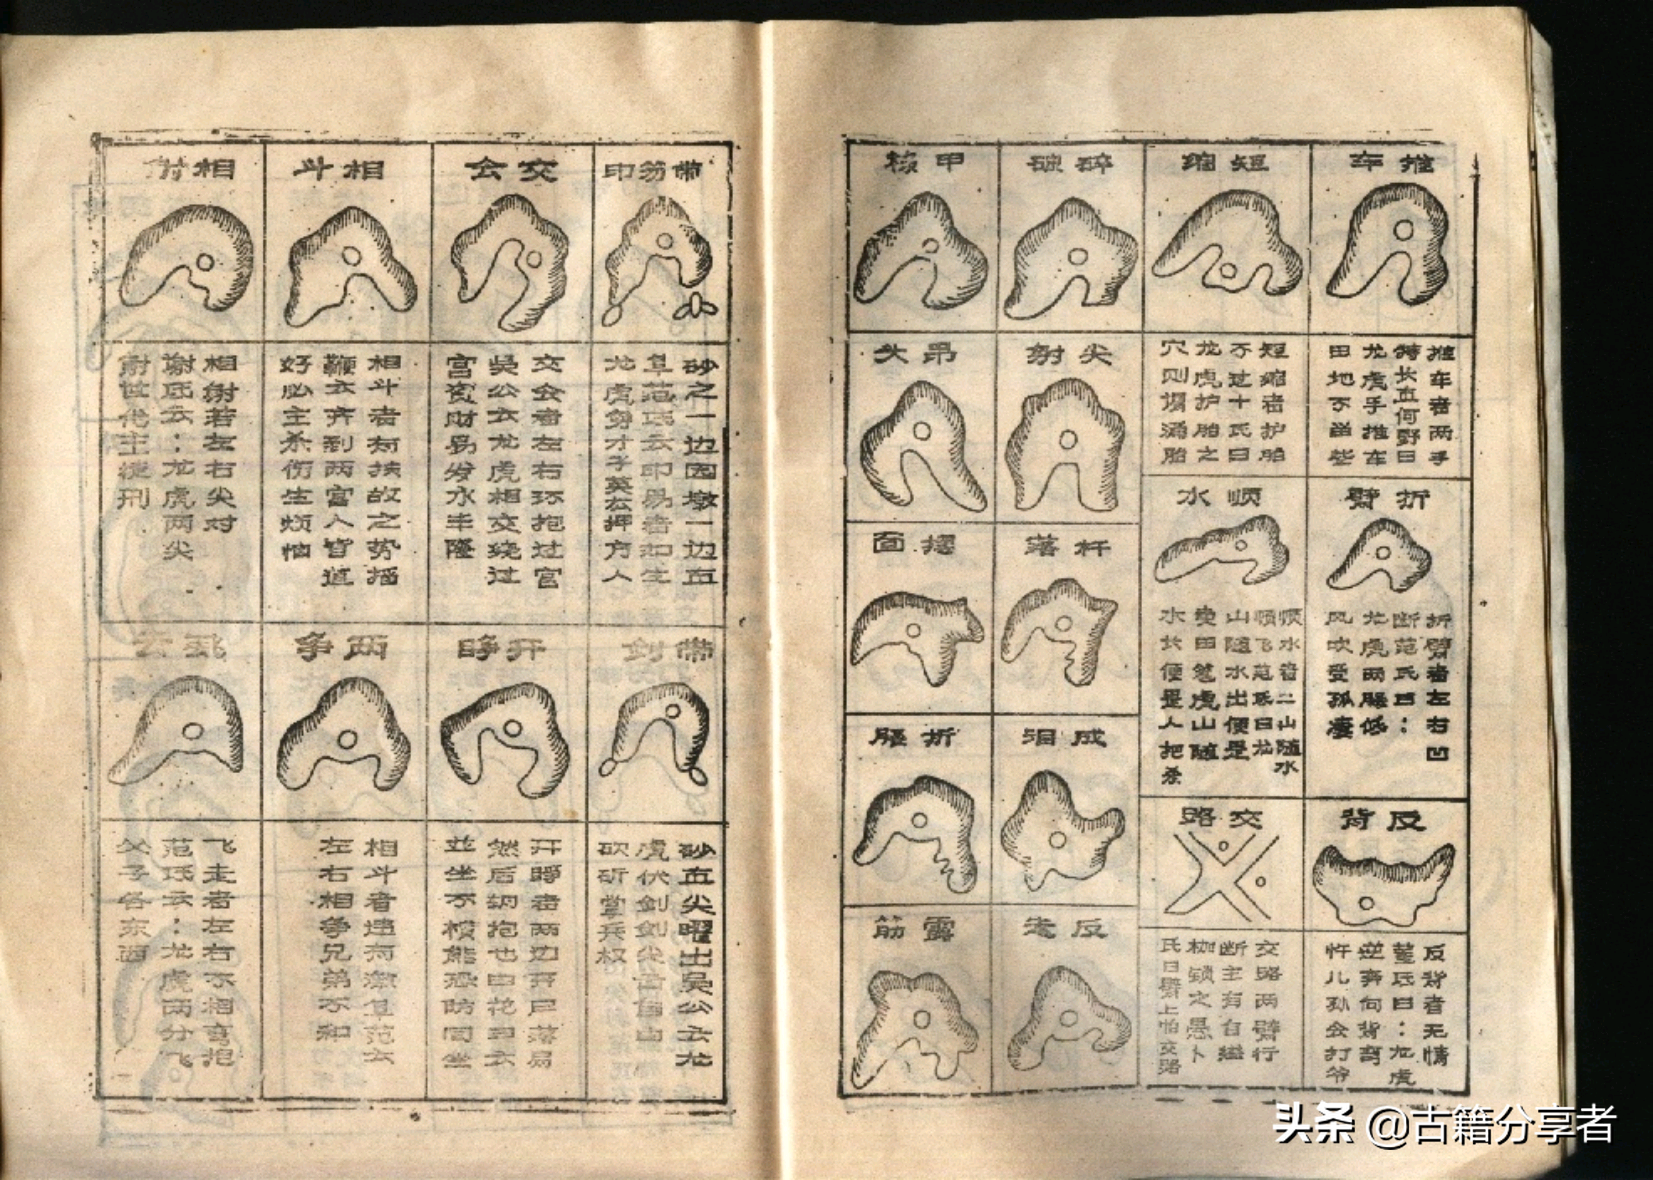 推车
推车者两手
特长直何野曰
龙虎手推车
田地不当些
短缩
短缩者护胎
不过十氏曰
龙虎护胎之
穴则谓漏胎
碎破
尖射
杆落
成泪
反老
甲
昂头
面
折腿
露筋
折臂
折臂者左右凹
断范氏曰：
龙虎两腰低
风吹受孤凄
顺水
顺水者二山随水
顺飞范氏曰龙
山随水出便是
卖田笔虎山随
水长便是人把杀
反背
反背者无情
董氏曰：龙虎
逆奔向背弯
忤儿孙会打爷
交路
交路两臂行
断主有自缢
枷锁之患卜
氏曰臂上怕交路
带笏印
砂之一边圆墩一边直
阜范氏云印易者如生
龙虎身才子英在押方人
交会
交会者左右环抱过宫
吴公云龙虎相交绕过
宫资财易发水丰隆
相斗
相斗者有扶故之势摇
鞭云齐到两宫人皆道
好必主杀伤生烦恼
相射
相射若左右尖对
谢氏云：龙虎两尖
射世代主徒刑
带剑
砂直尖曜出吴公云龙
虎伏剑剑尖
砍斫掌兵权
开睁
开睁者两边开尸落易
然后
並坐不
两争
相斗者逢有
左右相争兄弟不和
飞走者左右不相弯抱
范氏云：龙虎两分飞
父子各东西
头条 @古籍分享者